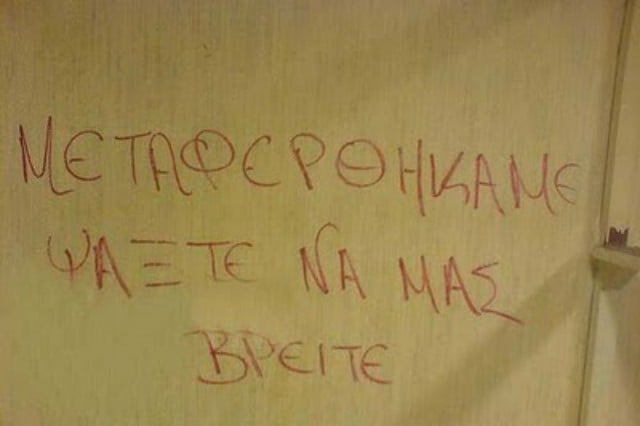 ΜΕΤΑΦΕΡΘΗΚΑΜΕ
ΨΑΞΤΕ ΝΑ ΜΑΣ
ΒΡΕΙΤΕ